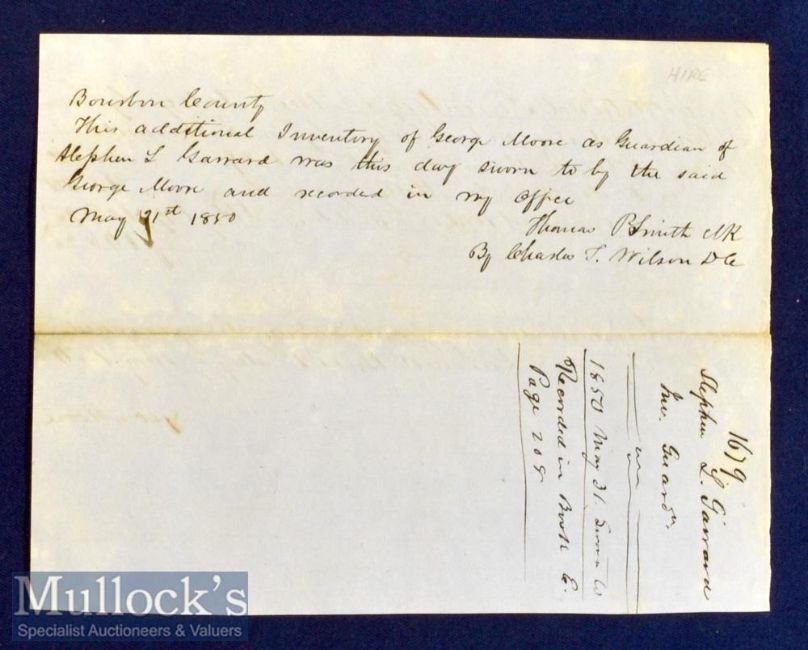 HIRE
Bourbon County
This additional Inventory of George Moore as Guardian of
Stephen L Garrard was this day sworn to by the said
George Moore and recorded in my office
May 31st 1850
Thomas P Smith Clk
By Charles T. Wilson DC
1679
Stephen L. Garrard
Inv. Guardn.
1850 May 31. Sworn to
Recorded in Book E.
Page 208
Mullock's
Specialist Auctioneers & Valuers